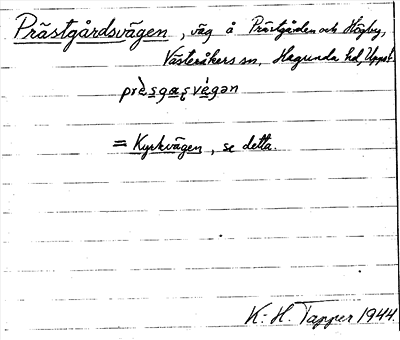 Prästgårdsvägen, väg å Prästgården och Högby,
Västeråkers sn, Hagunda hd, Uppl.
= Kyrkvägen, se detta.
K.-H. Tapper 1944.